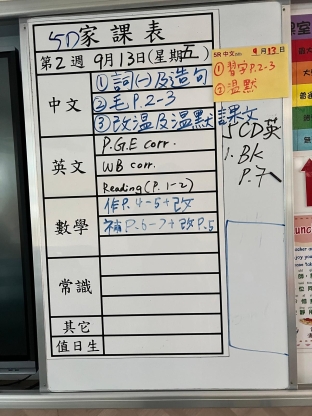 5D家課表
第2週 9月13日(星期五)
中文
①詞(一)及造句
②毛P.2-3
③改溫及溫默課文
英文
P.G.E corr.
WB corr.
Reading(P.1-2)
數學
作P.4-5+改
補P.6-7+改P.5
常識
其它
值日生
5R 中文 9月13日
①習字P.2-3
②溫默
5CD英
1. BK
P.7